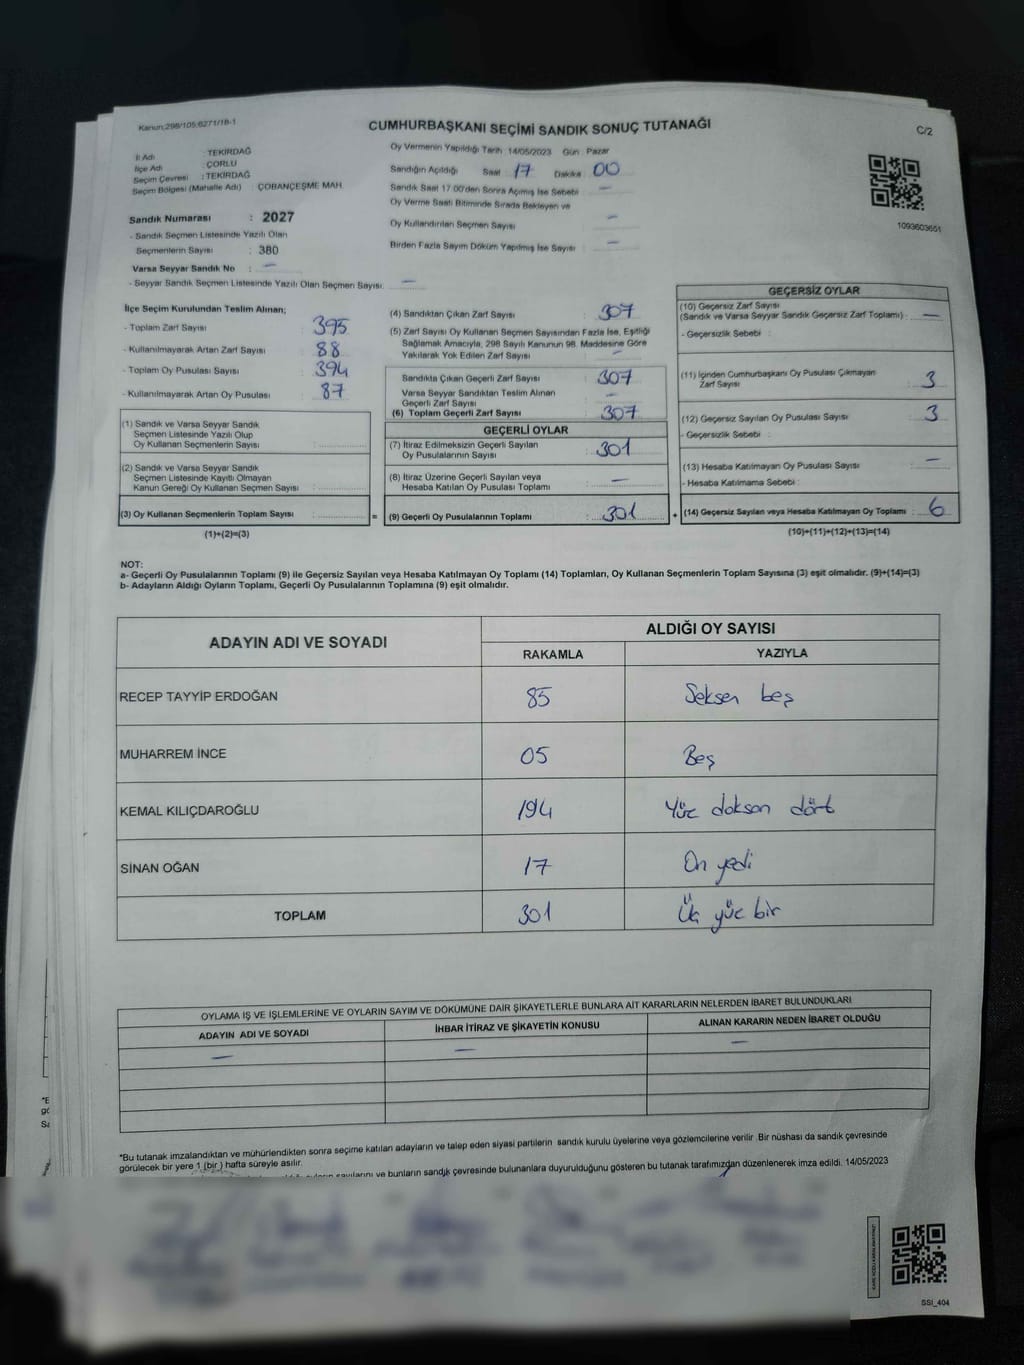 Kanun:298/105;6271/18-1
CUMHURBAŞKANI SEÇİMİ SANDIK SONUÇ TUTANAĞI
C/2
İl Adı : TEKİRDAĞ
İlçe Adı : ÇORLU
Seçim Çevresi : TEKİRDAĞ
Seçim Bölgesi (Mahalle Adı) : ÇOBANÇEŞME MAH.
Sandık Numarası : 2027
- Sandık Seçmen Listesinde Yazılı Olan
Seçmenlerin Sayısı : 380
Varsa Seyyar Sandık No : —
- Seyyar Sandık Seçmen Listesinde Yazılı Olan Seçmen Sayısı: —
Oy Vermenin Yapıldığı Tarih: 14/05/2023 Gün: Pazar
Sandığın Açıldığı Saat 17 Dakika 00
Sandık Saat 17.00'den Sonra Açılmış İse Sebebi : —
Oy Verme Saati Bitiminde Sırada Bekleyen ve
Oy Kullandırılan Seçmen Sayısı : —
Birden Fazla Sayım Döküm Yapılmış İse Sayısı : —
1093603651
İlçe Seçim Kurulundan Teslim Alınan;
- Toplam Zarf Sayısı : 395
- Kullanılmayarak Artan Zarf Sayısı : 88
- Toplam Oy Pusulası Sayısı : 394
- Kullanılmayarak Artan Oy Pusulası : 87
(1) Sandık ve Varsa Seyyar Sandık
Seçmen Listesinde Yazılı Olup
Oy Kullanan Seçmenlerin Sayısı :
(2) Sandık ve Varsa Seyyar Sandık
Seçmen Listesinde Kayıtlı Olmayan
Kanun Gereği Oy Kullanan Seçmen Sayısı :
(3) Oy Kullanan Seçmenlerin Toplam Sayısı : =
(1)+(2)=(3)
(4) Sandıktan Çıkan Zarf Sayısı : 307
(5) Zarf Sayısı Oy Kullanan Seçmen Sayısından Fazla İse, Eşitliği
Sağlamak Amacıyla, 298 Sayılı Kanunun 98. Maddesine Göre
Yakılarak Yok Edilen Zarf Sayısı : —
Sandıkta Çıkan Geçerli Zarf Sayısı : 307
Varsa Seyyar Sandıktan Teslim Alınan
Geçerli Zarf Sayısı : —
(6) Toplam Geçerli Zarf Sayısı : 307
GEÇERLİ OYLAR
(7) İtiraz Edilmeksizin Geçerli Sayılan
Oy Pusulalarının Sayısı : 301
(8) İtiraz Üzerine Geçerli Sayılan veya
Hesaba Katılan Oy Pusulası Toplamı : —
(9) Geçerli Oy Pusulalarının Toplamı : 301 +
GEÇERSİZ OYLAR
(10) Geçersiz Zarf Sayısı
(Sandık ve Varsa Seyyar Sandık Geçersiz Zarf Toplamı) : —
- Geçersizlik Sebebi :
(11) İçinden Cumhurbaşkanı Oy Pusulası Çıkmayan
Zarf Sayısı : 3
(12) Geçersiz Sayılan Oy Pusulası Sayısı : 3
- Geçersizlik Sebebi :
(13) Hesaba Katılmayan Oy Pusulası Sayısı : —
- Hesaba Katılmama Sebebi :
(14) Geçersiz Sayılan veya Hesaba Katılmayan Oy Toplamı : 6
(10)+(11)+(12)+(13)=(14)
NOT:
a- Geçerli Oy Pusulalarının Toplamı (9) ile Geçersiz Sayılan veya Hesaba Katılmayan Oy Toplamı (14) Toplamları, Oy Kullanan Seçmenlerin Toplam Sayısına (3) eşit olmalıdır. (9)+(14)=(3)
b- Adayların Aldığı Oyların Toplamı, Geçerli Oy Pusulalarının Toplamına (9) eşit olmalıdır.
ADAYIN ADI VE SOYADI
ALDIĞI OY SAYISI
RAKAMLA YAZIYLA
RECEP TAYYİP ERDOĞAN 85 Seksen beş
MUHARREM İNCE 05 Beş
KEMAL KILIÇDAROĞLU 194 Yüz doksan dört
SİNAN OĞAN 17 On yedi
TOPLAM 301 Üç yüz bir
OYLAMA İŞ VE İŞLEMLERİNE VE OYLARIN SAYIM VE DÖKÜMÜNE DAİR ŞİKAYETLERLE BUNLARA AİT KARARLARIN NELERDEN İBARET BULUNDUKLARI
ADAYIN ADI VE SOYADI İHBAR İTİRAZ VE ŞİKAYETİN KONUSU ALINAN KARARIN NEDEN İBARET OLDUĞU
— — —
*Bu tutanak imzalandıktan ve mühürlendikten sonra seçime katılan adayların ve talep eden siyasi partilerin sandık kurulu üyelerine veya gözlemcilerine verilir. Bir nüshası da sandık çevresinde
görülecek bir yere 1 (bir) hafta süreyle asılır.
sayılarını ve bunların sandık çevresinde bulunanlara duyurulduğunu gösteren bu tutanak tarafımızdan düzenlenerek imza edildi. 14/05/2023
SSI_404